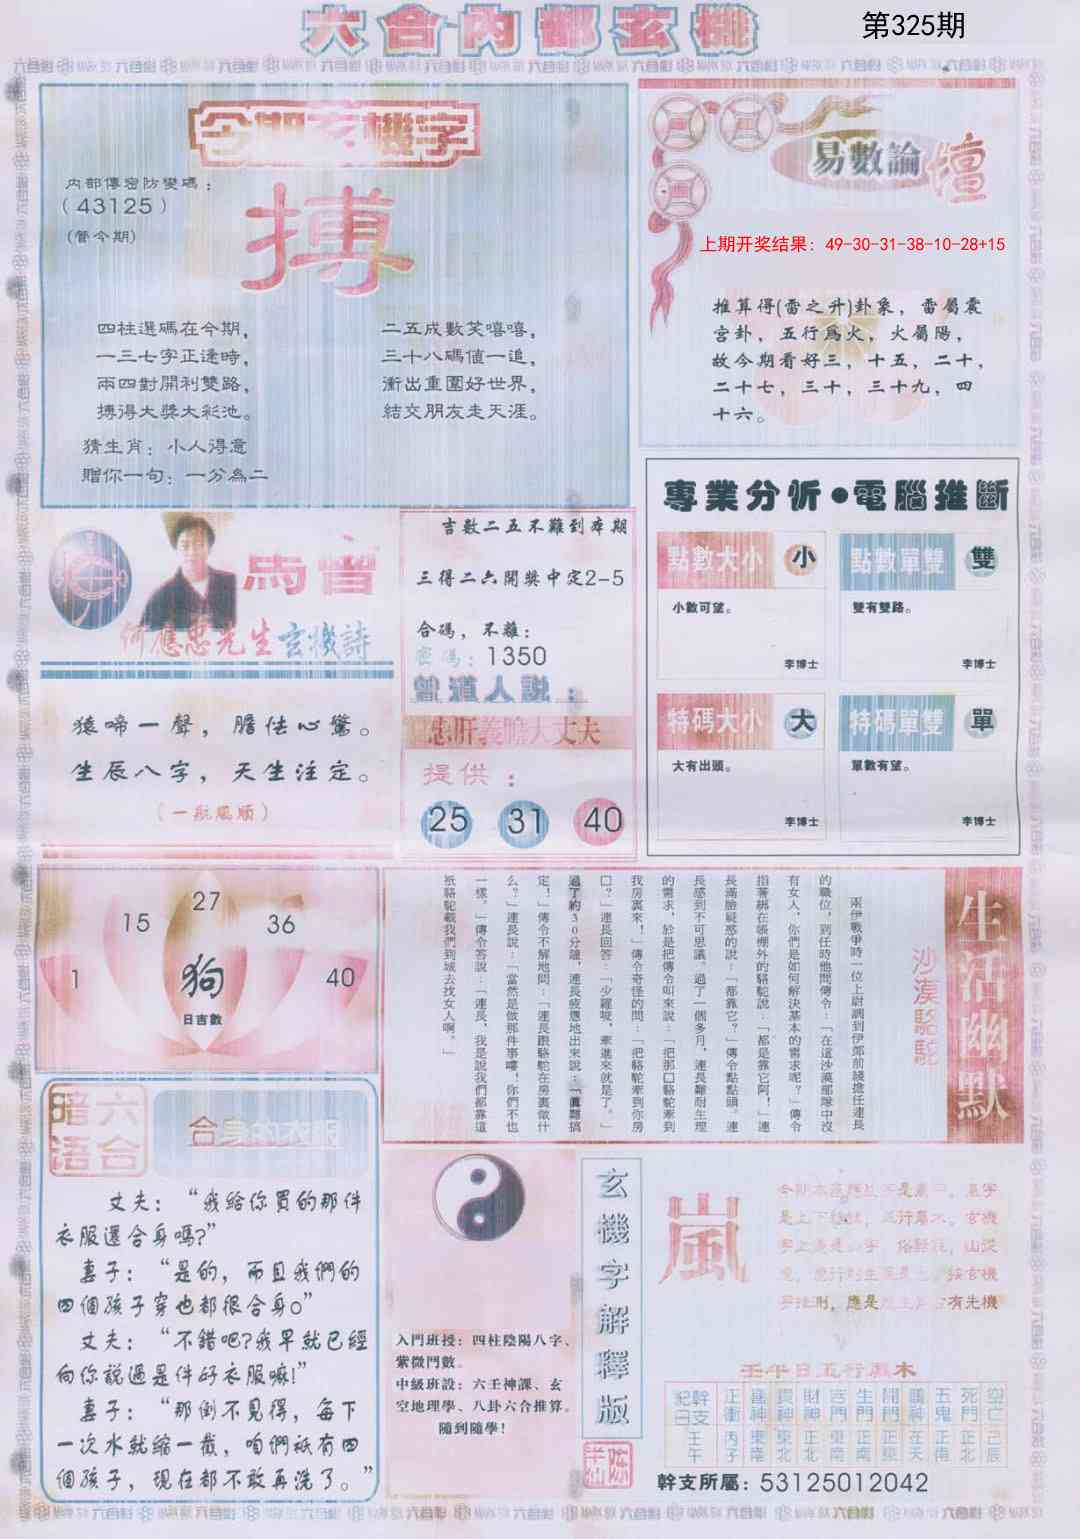 六合内部玄機
第325期
今期玄機字
内部傳密防變碼：
（43125）
(管今期)
搏
四柱選碼在今期，
一三七字正逢時，
兩四對開利雙路，
搏得大獎大彩池。
二五成數笑嘻嘻。
三十八碼值一追，
衝出重圍好世界，
結交朋友走天涯。
猜生肖：小人得意
贈你一句：一分為二
易數論壇
上期开奖结果：49-30-31-38-10-28+15
推算得(雷之升)卦象，雷屬震
宮卦，五行爲火，火屬陽，
故今期看好三，十五，二十，
二十七，三十，三十九，四
十六。
專業分析●電腦推斷
點數大小 小
小數可望。
李博士
點數單雙 雙
雙有雙路。
李博士
特碼大小 大
大有出頭。
李博士
特碼單雙 單
單數有望。
李博士
何應忠先生玄機詩
猿啼一聲，膽怯心驚。
生辰八字，天生注定。
（一帆風順）
吉數二五不難到本期
三得二六開獎中定2-5
合碼，不離：
密碼：1350
曾道人説：
忠肝義膽大丈夫
提供：
25 31 40
1 15 27 36 40
狗
日吉數
生活幽默
沙漠駱駝
兩伊戰爭時一位上尉調到伊郎前綫擔任連長
的職位，到任時他問傳令：「在這沙漠部隊中沒
有女人，你們是如何解決基本的需求呢？」傳令
指著綁在帳棚外的駱駝說：「都是靠它阿！」連
長滿臉疑惑的說：「都靠它？」傳令點點頭。連
長感到不可思議。過了一個多月，連長難耐生理
的需求，於是把傳令叫來說：「把那口駱駝牽到
我房裏來！」傳令奇怪的問：「把駱駝牽到你房
口？」連長回答：「少羅唆，牽進來就是了。」
過了約30分鐘，連長疲憊地出來說：「真難搞
定！」傳令不解地問：「連長跟駱駝在房裏做什
么？」連長說：「當然是做那件事嘍，你們不也
一樣。」傳令答說：「連長，我是說我們都靠這
衹駱駝載我們到城去找女人啊。」
六合暗语
合身的衣服
丈夫：“我给你買的那件
衣服還合身嗎?”
妻子：“是的，而且我們的
四個孩子穿也都很合身。”
丈夫：“不錯吧?我早就已經
向你說過是件好衣服嘛!”
妻子：“那倒不見得，每下
一次水就縮一截，咱們衹有四
個孩子，現在都不敢再洗了。”
入門班授：四柱陰陽八字、
紫微鬥數。
中級班設：六壬神課、玄
空地理學、八卦六合推算。
隨到隨學!
玄機字解釋版
嵐
壬午日五行屬木
幹支 紀日 壬午
正衝 丙子
喜神 東南
貴神 東北
財神 正北
吉門 東南
生門 正南
開門 正東
鶴神 在天
五鬼 正南
死門 正北
空亡 己辰
幹支所屬：53125012042